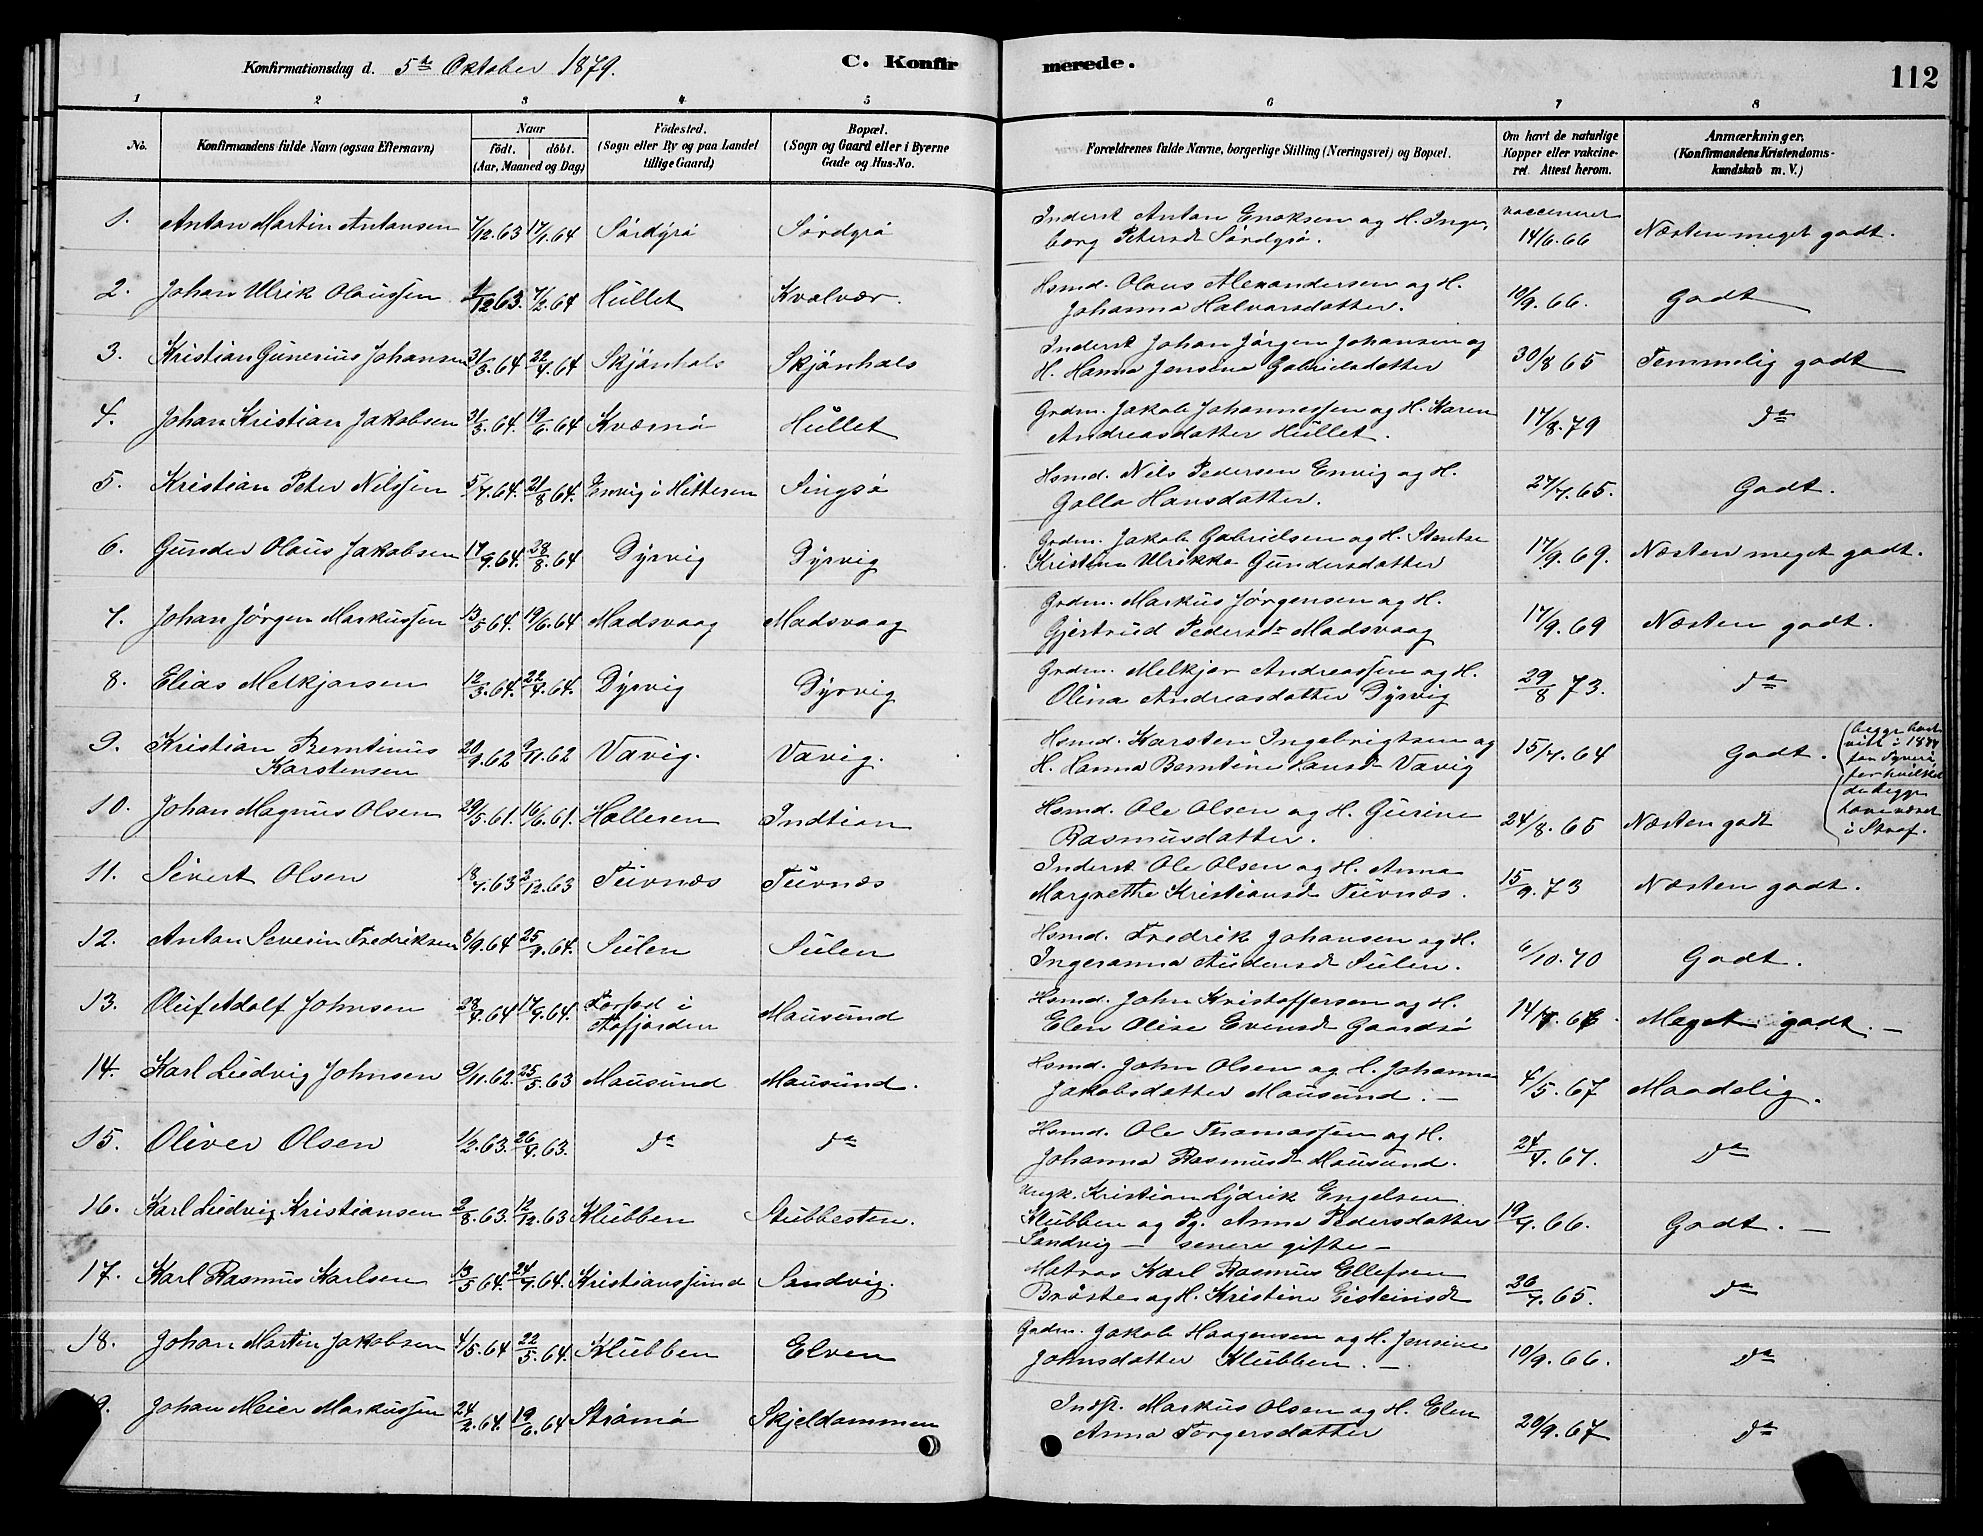 Konfirmationsdag d. 5te Oktober 1879.
C. Konfirmerede.
112
1 2 3 4 5 6 7 8
No.
Konfirmandens fulde Navn (ogsaa Efternavn)
Naar
födt. döbt.
(Aar, Maaned og Dag)
Födested.
(Sogn eller By og paa Landet
tillige Gaard)
Bopæl.
(Sogn og Gaard eller i Byerne
Gade og Hus-No.
Forældrenes fulde Navne, borgerlige Stilling (Næringsvei) og Bopæl.
Om havt de naturlige
Kopper eller vakcine-
ret. Attest herom.
Anmærkninger.
(Konfirmandens Kristendoms-
kundskab m. V.)
1. Anton Martin Antonsen 7/12.63 17/1.64 Sördyrö Sördyrö Inderst Anton Enoksen og H. Inge-
borg Petersd Sördyrö. vaccineret 14/6.66 Næsten meget godt.
2. Johan Ulrik Olaussen 1/12 63. 7/2.64 Hullet Kvalvær. Hsmd. Olaus Alexandersen og H.
Johanna Halvorsdatter. 10/9.66. Godt
3. Kristian Gunerius Johansen 31/3.64 22/4.64 Skjönhals Skjönhals Inderst Johan Jörgen Johansen og
H. Hanna Jensine Gabrielsdatter 30/8 65 Temmelig godt
4. Johan Kristian Jakobsen 31/3.64. 19/6.64 Kværnö Hullet Grdm. Jakob Johannessen og H. Karen
Andreasdatter Hullet. 17/8.79 do
5. Kristian Peter Nilssen 5/7.64. 21/8 64. Envig i Hitteren Singsö Hsmd. Nils Pedersen Envig og H.
Golla Hansdatter. 27/7.65. Godt.
6. Gunder Olaus Jakobsen 17/9.64. 28/8.64 Dyrvig Dyrvig Grdm. Jakob Gabrielsen og H.
Kristina Ulrikka Gundersdatter 17/9.69. Næsten meget godt.
7. Johan Jörgen Markussen 13/5 64. 19/6.64 Madsvaag Madsvaag Grdm. Markus Jörgensen og H.
Gjertrud Pedersdr Madsvaag 17/9.69 Næsten godt.
8. Elias Melkjorsen 12/3.64. 22/4.64. Dyrvig Dyrvig Grdm. Melkjor Andreassen og H.
Olina Andreasdatter Dyrvig 29/8 73. do
9. Kristian Berntinus
Karstensen 20/9.62 9/11.62 Vavig. Vavig. Hsmd. Karsten Ingebrigtsen og
H. Hanna Berntine Hansd Vavig 15/7.64 Godt.
10. Johan Magnus Olsen 29/5.61. 16/6.61. Holleren Indtian Hsmd. Ole Olsen og H. Gurine
Rasmusdatter. 24/8.65 Næsten godt
for hvilket
de begge
have været
i Straf.
11. Sivert Olsen 18/7.63 2/12.63 Tuvnæs Tuvnæs Inderst Ole Olsen og H. Anna
Margrethe Kristiansd Tuvnæs. 15/9.73 Næsten godt.
12. Anton Severin Fredriksen 8/9.64 25/9.64. Sulen Sulen Hsmd. Fredrik Johansen og H.
Ingeranna Audensd Sulen. 6/10.70 Godt.
13. Oluf Adolf Johnsen 28/4.64 17/9.64. i
Aafjorden Mausund Hsmd. John Kristoffersen og H.
Elen Olise Evensd Gaardsö Meget godt. —
14. Karl Ludvig Johnsen 9/11.62. 25/5.63 Mausund Mausund. Hsmd. John Olsen og H. Johanna
Jakobsdatter Mausund. — 4/5.67 Maadelig.
15. Oliver Olsen 1/2.63. 26/4.63. do do Hsmd. Ole Thomassen og H.
Johanna Rasmusd Mausund. 24/4.67. do
16. Karl Ludvig Kristiansen 2/8.63. 12/12.63 Klubben Stubbesten. Ungk. Kristian Lydrik Engelsen
Klubben og Pg. Anna Pedersdatter
Sandvig — senere gifte — 19/9.66. Godt. —
17. Karl Rasmus Karlsen 13/5 64. 24/7.64. Kristianssund Sandvig. Matros Karl Rasmus Ellefsen
Bröste og H. Kristine Eisteinsd 26/7.65. do
18. Johan Martin Jakobsen 4/5.64 22/5.64. Klubben Elven Grdm. Jakob Haagensen og H. Jensine
Johnsdatter Klubben. — 10/9.66. do
19. Johan Meier Markussen 24/2.64. 19/6.64 Strömö Skjeldammen Indst. Markus Olsen og H. Elen
Anna Torgersdatter 20/9.67 do